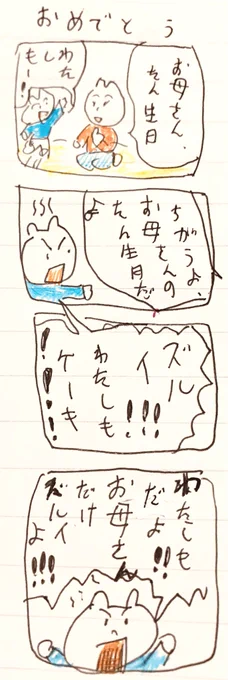 おめでとう
お母さん、
たん生日
わたし
もー!
ちがうよ、
お母さんの
たん生日だ
よ
ズル
イ!!!
わたしも
ケーキ
!!!!
わたしも
だよ!!
お母さん
だけ
ズルイ
よ!!!